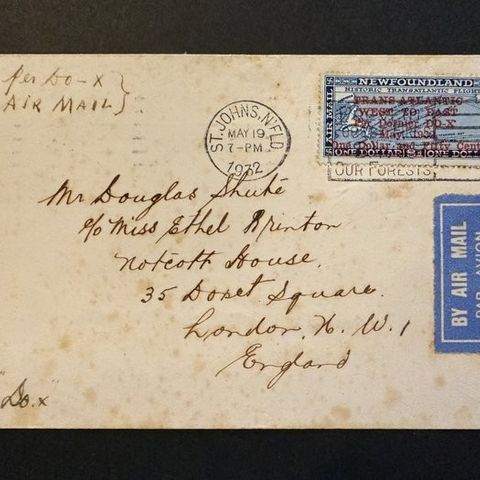 Per Do-X
AIR MAIL
ST. JOHNS, N'FLD.
MAY 19
7-PM
1932
AIR MAIL
NEWFOUNDLAND
HISTORIC TRANSATLANTIC FLIGHTS
TRANS-ATLANTIC
WEST TO EAST
Per Dornier DO-X
May, 1932.
One Dollar and Fifty Cents
ONE DOLLAR ONE DOLLAR
OUR FORESTS
Mr Douglas Shute
c/o Miss Ethel Brinton
Notcott House.
35 Dorset Square.
London. N. W. 1
England
BY AIR MAIL
PAR AVION
"Do.x"